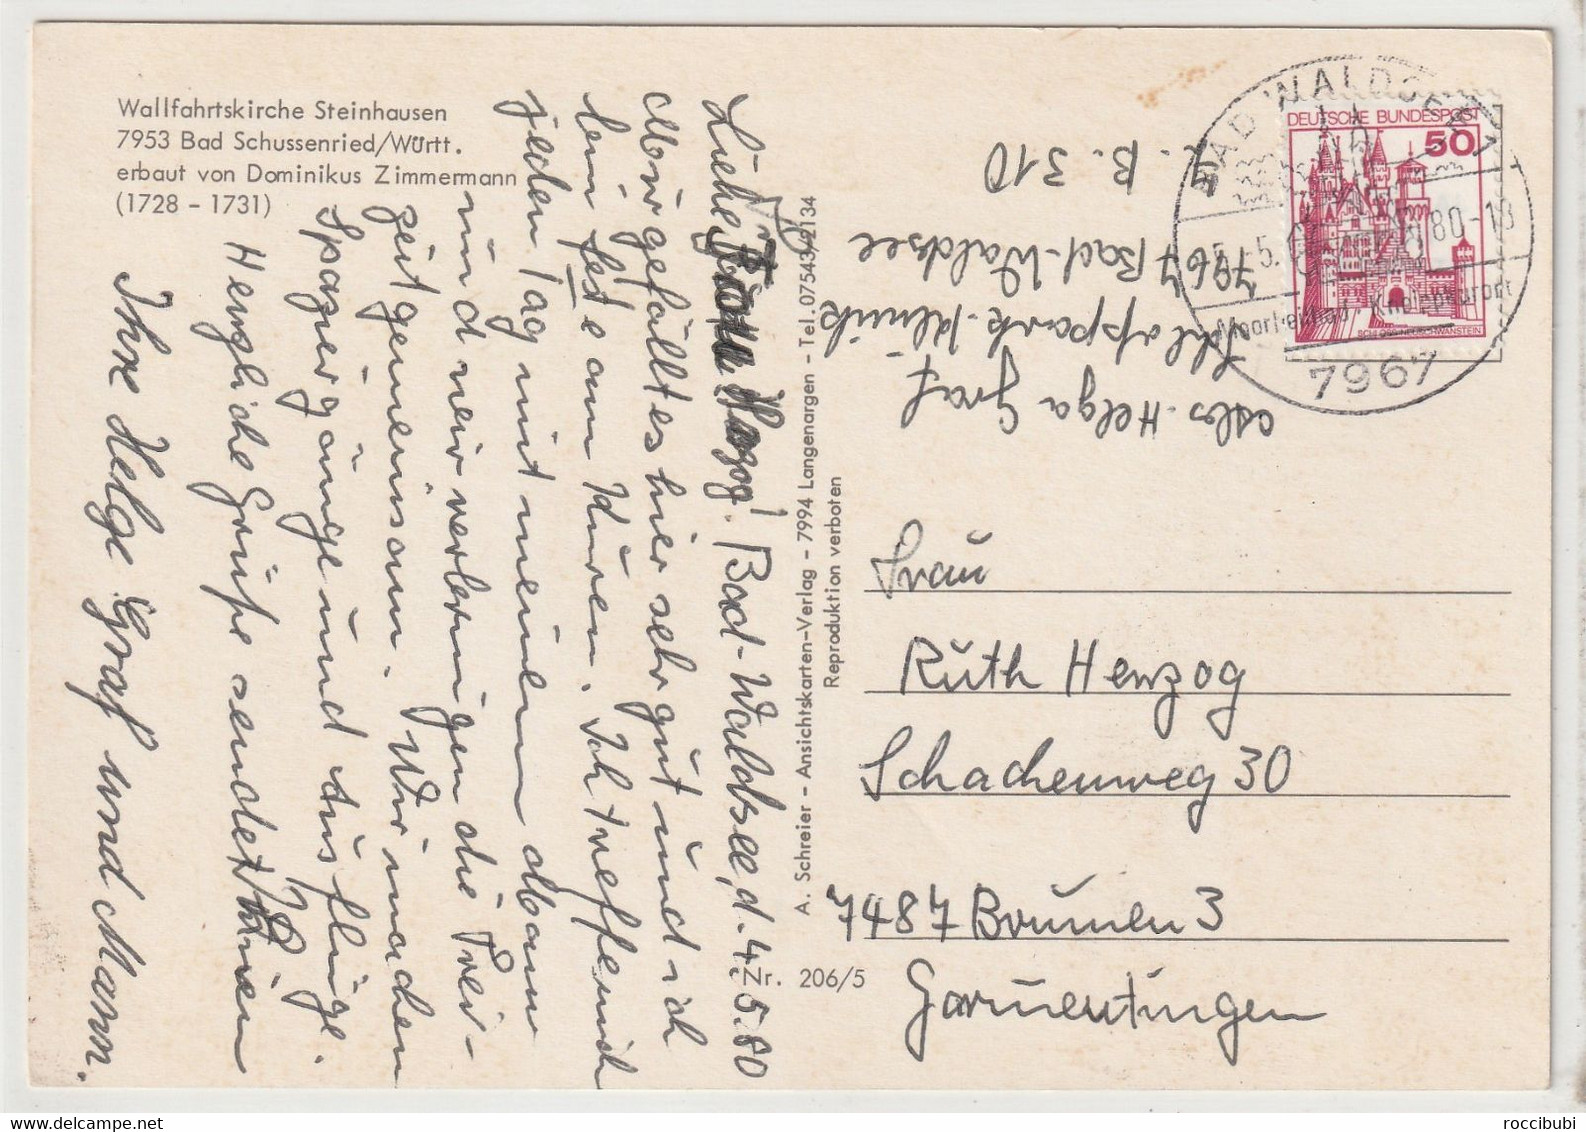 Wallfahrtskirche Steinhausen
7953 Bad Schussenried/Württ.
erbaut von Dominikus Zimmermann
(1728 – 1731)
Bad-Waldsee, d. 4.5.80
Liebe Frau Herzog!
Mir gefällt es hier sehr gut und ich
bin feste am Kuren. Ich treffe mich
jeden Tag mit meinem Mann
und wir verbringen die Frei-
zeit gemeinsam. Wir machen
Spaziergänge und Ausflüge.
Herzliche Grüße sendet Ihnen
Ihre Helga Graf und Mann.
A. Schreier – Ansichtskarten-Verlag – 7994 Langenargen – Tel. 07543/2134
Reproduktion verboten
Nr. 206/5
Abs. Helga Graf
Schloßpark-Klinik
7967 Bad-Waldsee
B. 310
DEUTSCHE BUNDESPOST
50
SCHLOSS NEUSCHWANSTEIN
BAD WALDSEE 1
-5. 80-18
Moorheilbad · Kneippkurort
7967
Frau
Ruth Herzog
Schachenweg 30
7487 Gammertingen 3